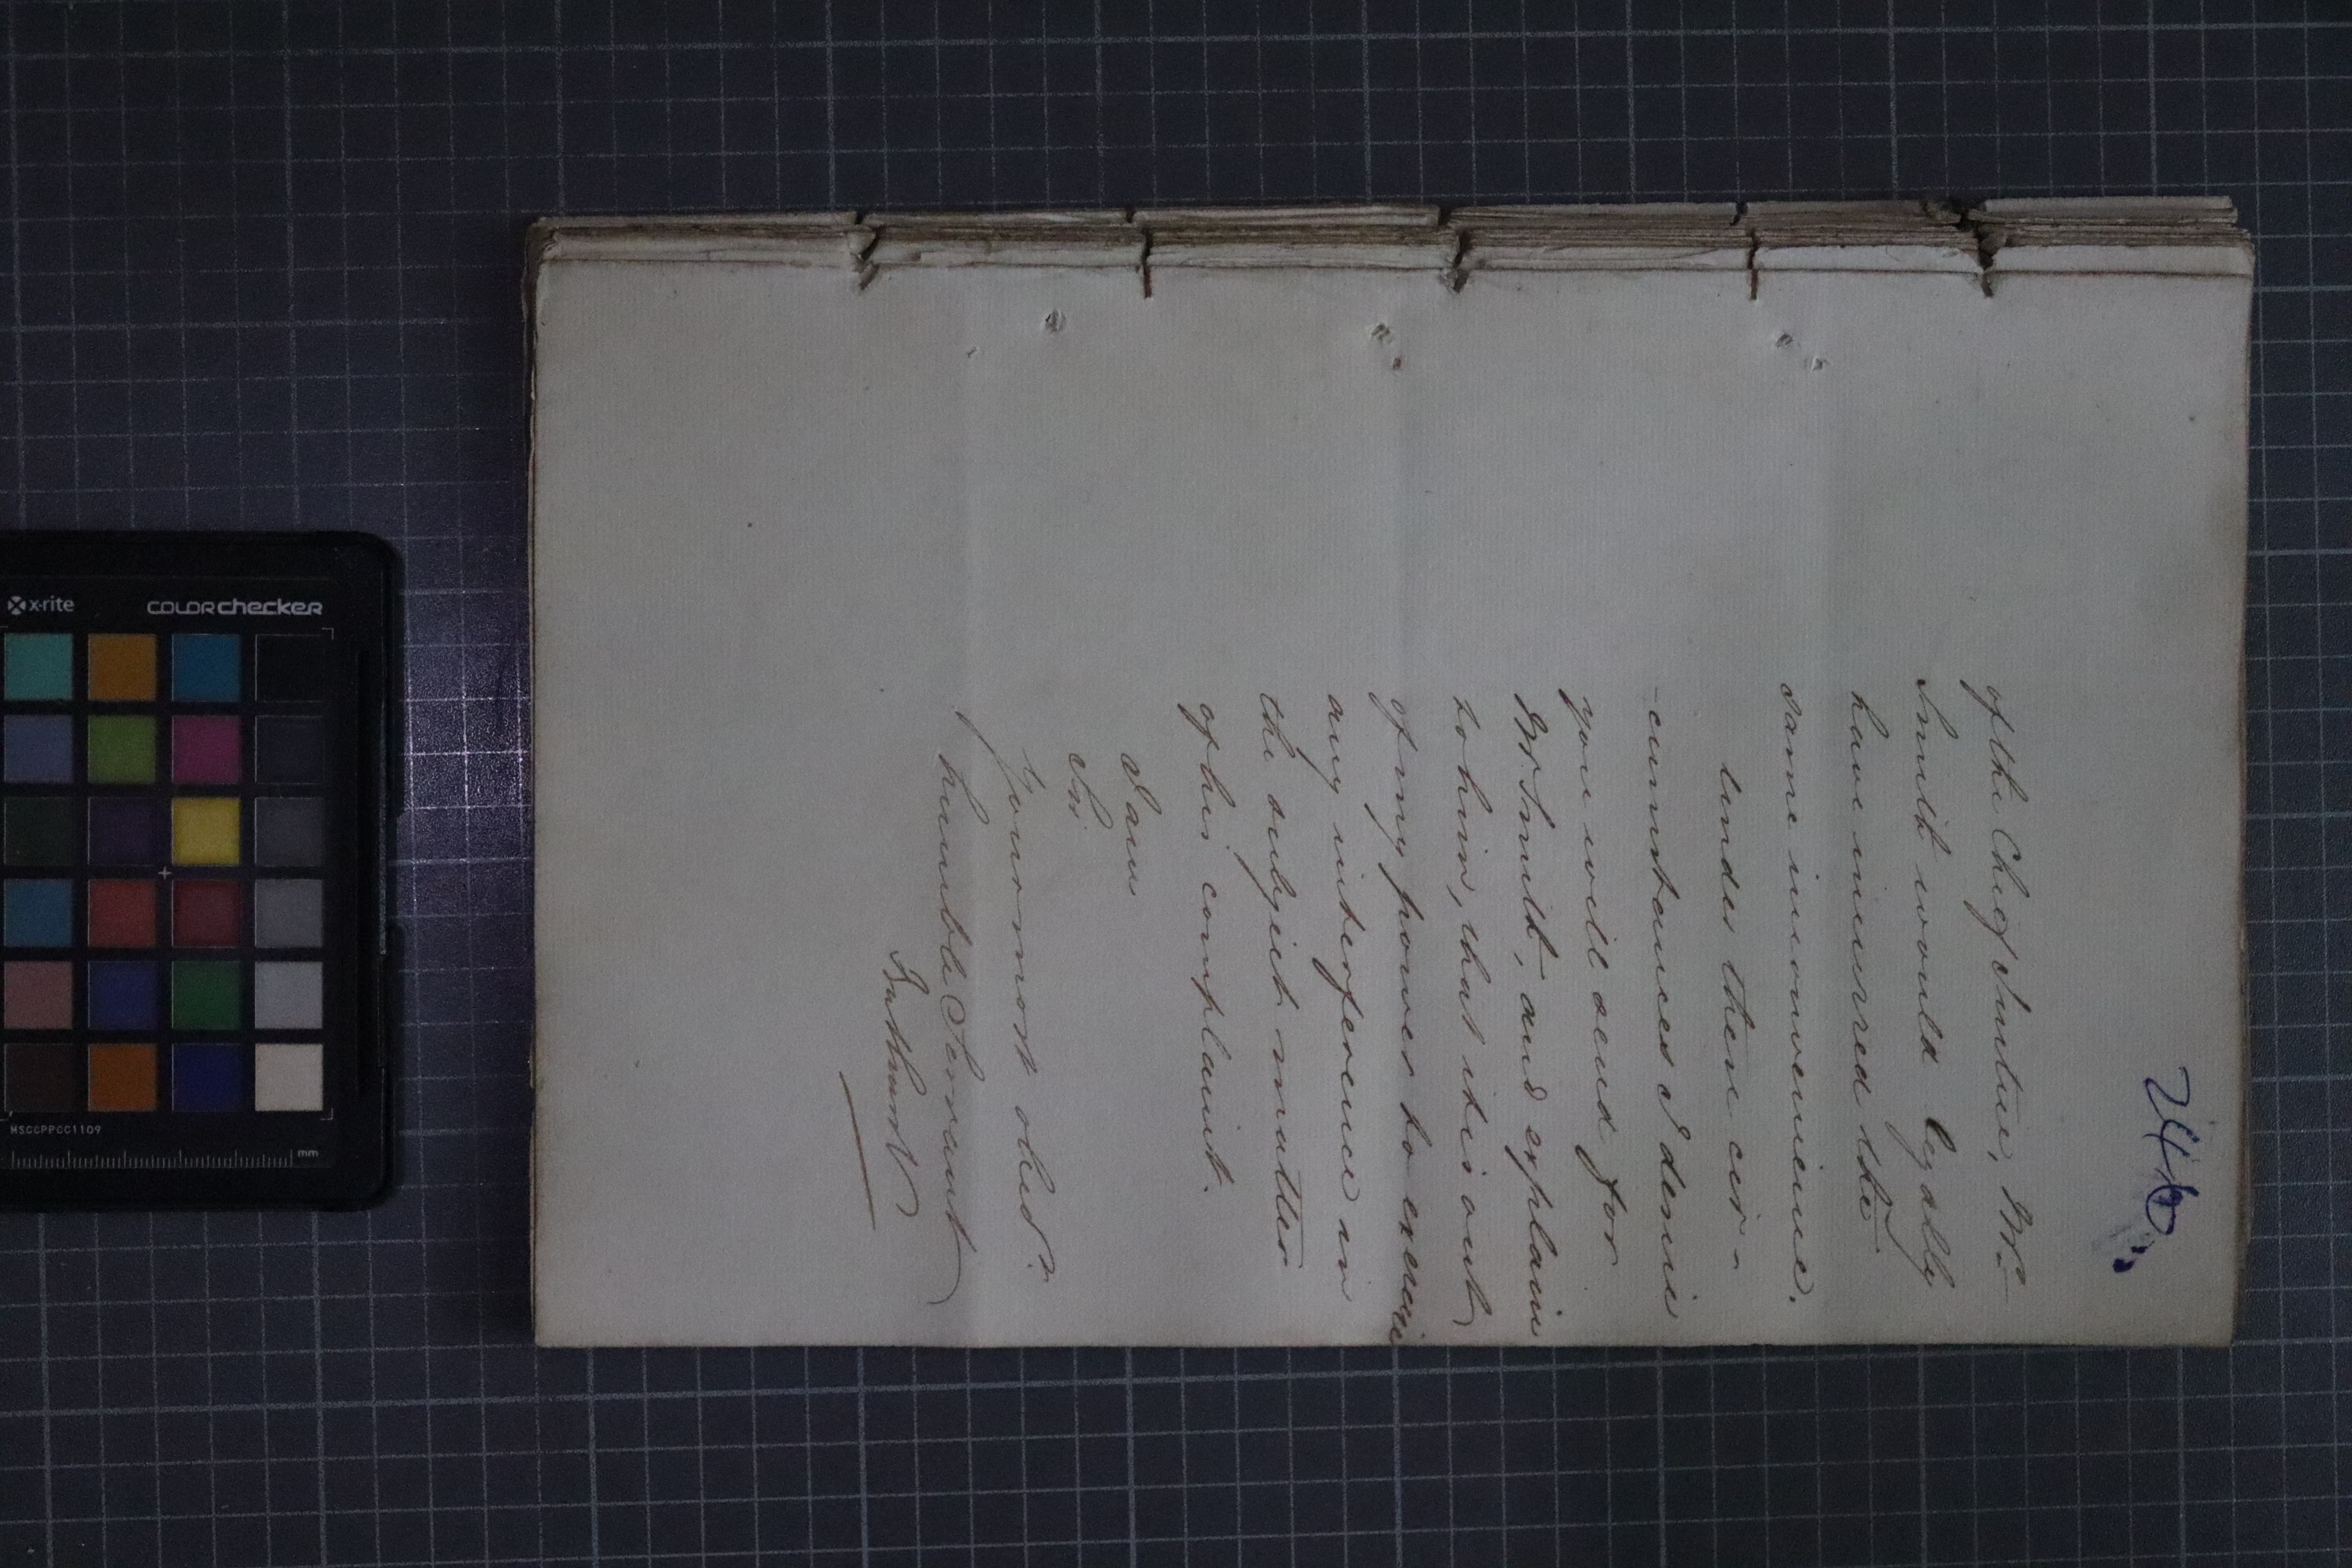 246
of the Chief Justice, Mr.
Smith would legally
have incurred the
same inconvenience.
Under these cir-
-cumstances I desire
you will send for
Mr. Smith, and explain
to him, that it is out
of my power to exercise
any interference in
the subject matter
of his complaint.
I am
Sir
Your most obed.t
humble Servant
Bathurst
x-rite
colorchecker
MSCCPPCC1109
mm